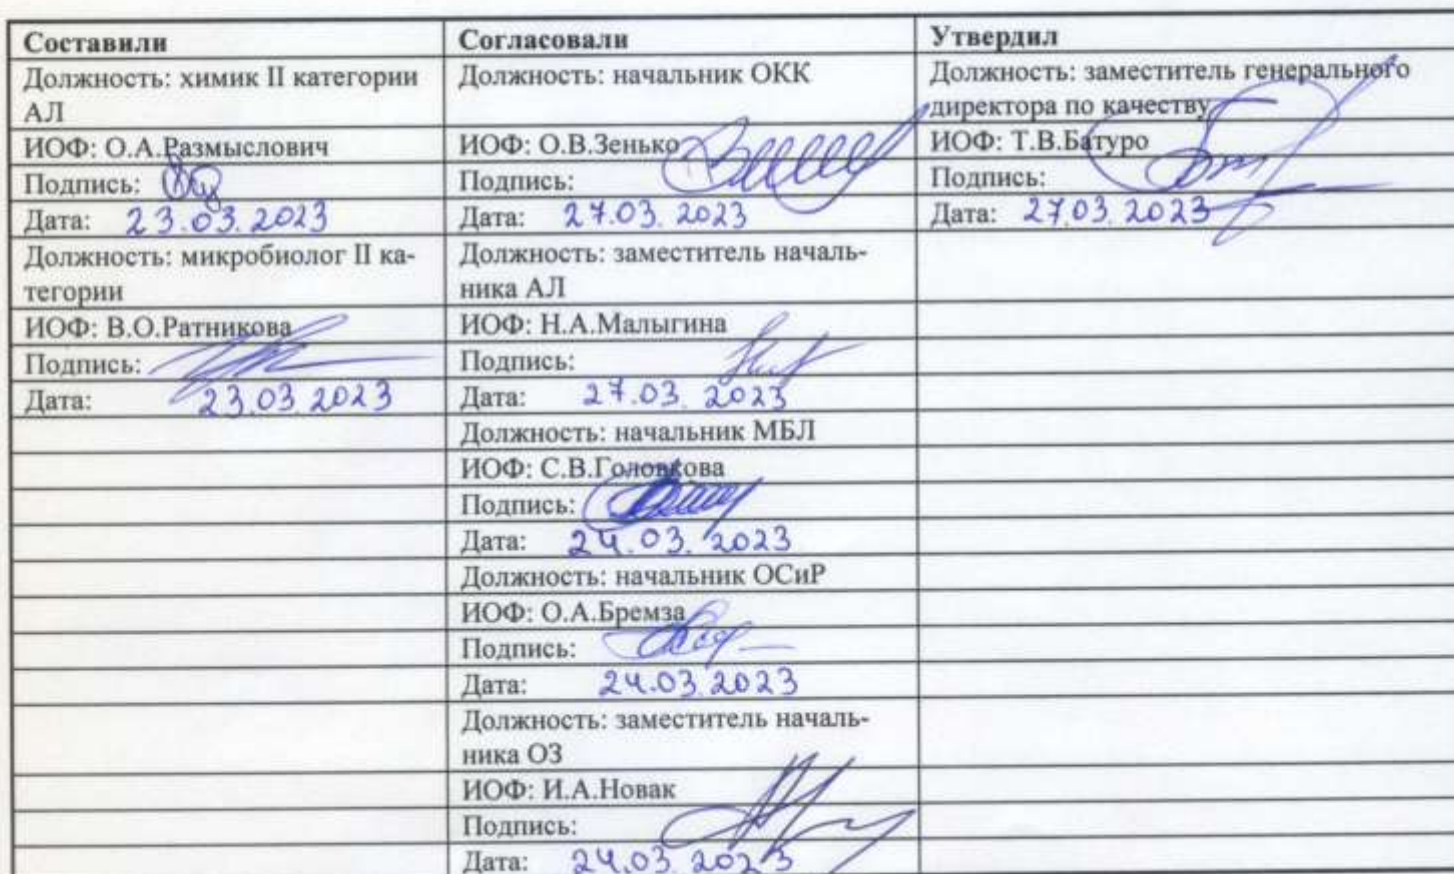 Составили Согласовали Утвердил
Должность: химик II категории Должность: начальник ОКК Должность: заместитель генерального
АЛ директора по качеству
ИОФ: О.А.Размыслович ИОФ: О.В.Зенько ИОФ: Т.В.Батуро
Подпись: Подпись: Подпись:
Дата: 23.03.2023 Дата: 27.03.2023 Дата: 27.03.2023
Должность: микробиолог II ка- Должность: заместитель началь-
тегории ника АЛ
ИОФ: В.О.Ратникова ИОФ: Н.А.Малыгина
Подпись: Подпись:
Дата: 23.03.2023 Дата: 27.03.2023
Должность: начальник МБЛ
ИОФ: С.В.Головкова
Подпись:
Дата: 24.03.2023
Должность: начальник ОСиР
ИОФ: О.А.Бремза
Подпись:
Дата: 24.03.2023
Должность: заместитель началь-
ника ОЗ
ИОФ: И.А.Новак
Подпись:
Дата: 24.03.2023